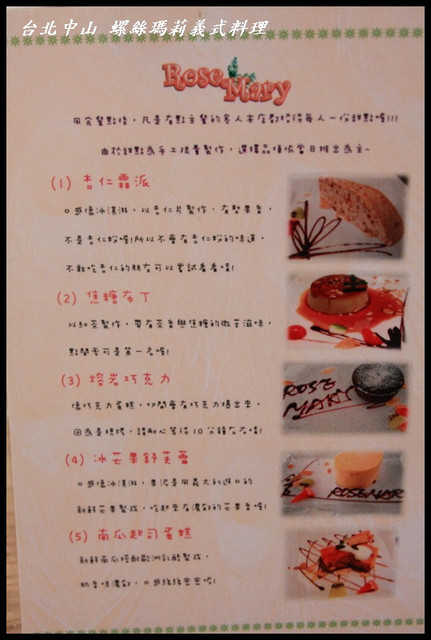 台北中山 螺絲瑪莉義式料理
Rose Mary
用完餐點後，凡是有點主餐的客人本店都招待每人一份甜點喔!!!
由於甜點為手工限量製作，選擇品項依當日推出為主~
(1) 杏仁霜派
口感像冰淇淋，以杏仁片製作，有堅果香，
不是杏仁粉喔!所以不會有杏仁粉的味道，
不敢吃杏仁的朋友可以嘗試看看唷!
(2) 焦糖布丁
以紅茶製作，帶有茶香與焦糖的微苦滋味，
點閱率可是第一名喔!
(3) 熔岩巧克力
像巧克力蛋糕，切開會有巧克力爆出來，
因為是現烤，請耐心等待10分鐘左右唷!
(4) 冰芒果舒芙蕾
口感像冰淇淋，果泥是用義大利進口的
新鮮芒果製成，吃起來有濃郁的芒果香喔!
(5) 南瓜起司蛋糕
新鮮南瓜搭配歐洲乳酪製成，
奶香味濃郁，口感綿綿密密唷!
ROSE
MARY
ROSEMAR